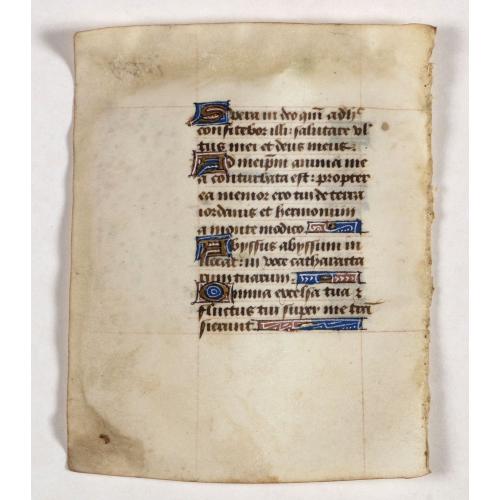 Spera in deo qm̄ adhᶜ
confitebor illi: salutare vl
tus mei et deus meus:
Ad meipm̄ anima me
a conturbata est: propter
ea memor ero tui de terra
iordanis et hermonum
a monte modico.
Abyssus abyssum in
uocat: in voce catharacta
rum tuarum.
Omnia excelsa tua ⁊
fluctus tui super me trā
sierunt